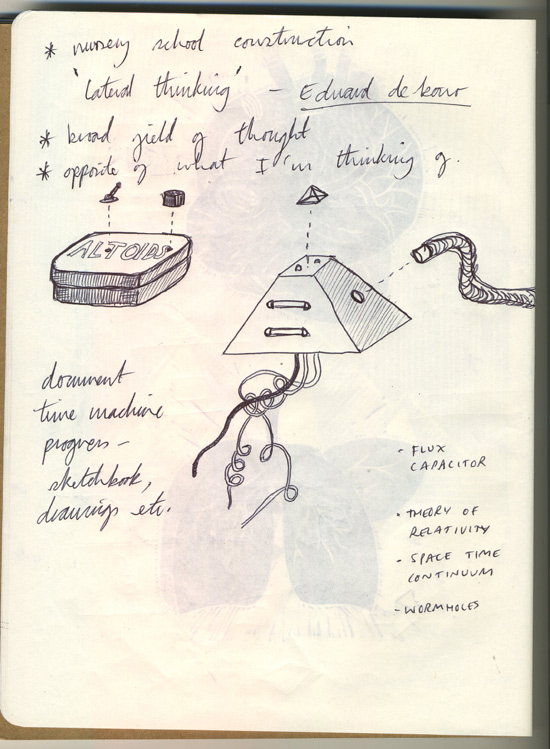 * nursery school construction
'lateral thinking' - Eduard de bono
* broad field of thought
* opposite of what I'm thinking of.
ALTOIDS
document
time machine
progress -
sketchbook,
drawings etc.
- FLUX
CAPACITOR
- THEORY OF
RELATIVITY
- SPACE TIME
CONTINUUM
- WORMHOLES